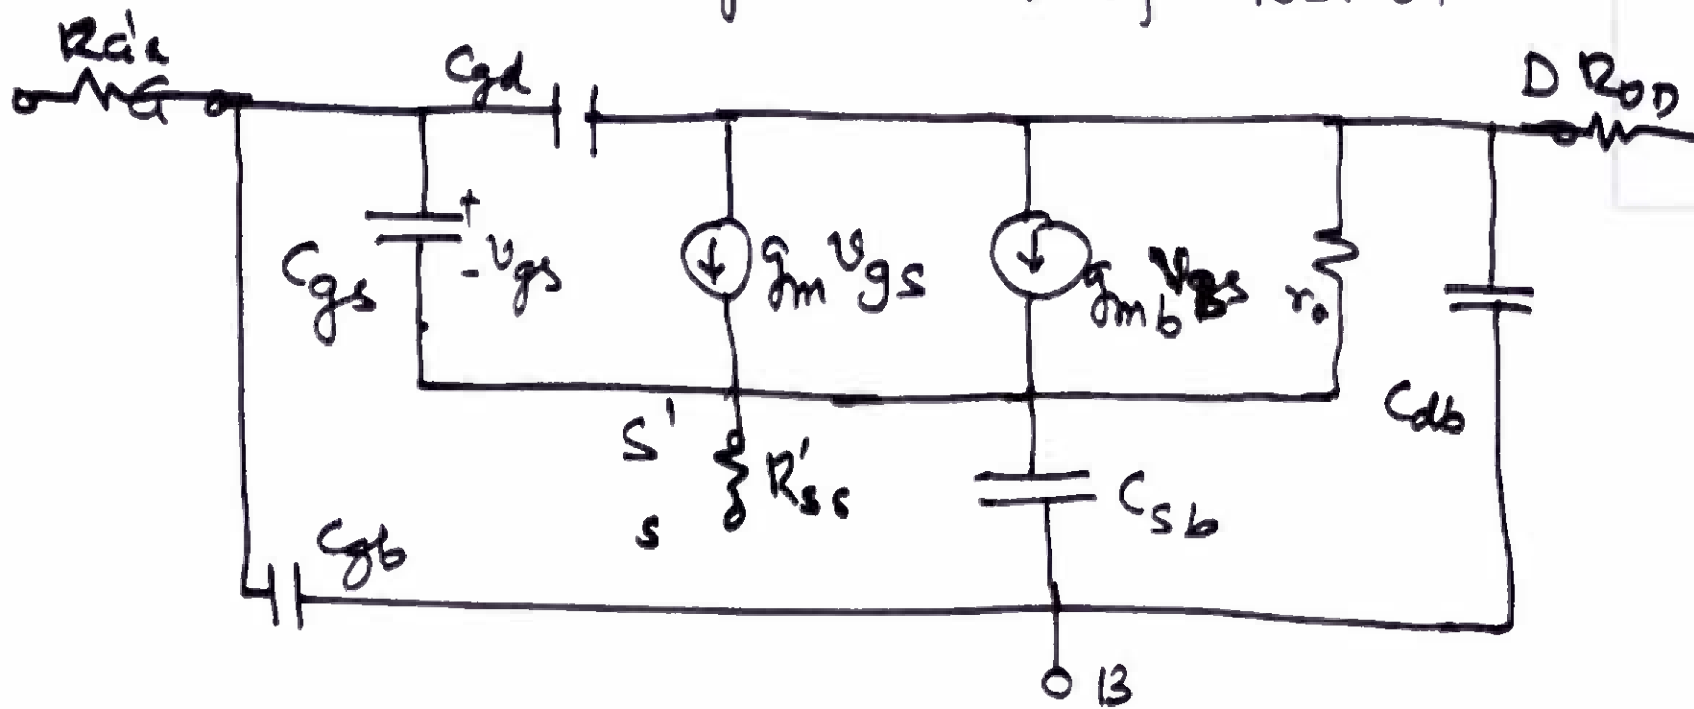 Cgd
D RDD
G
Cgs
+
- vgs
gm vgs
gmb vBs
r0
Cdb
S'
R'ss
s
Csb
Cgb
B